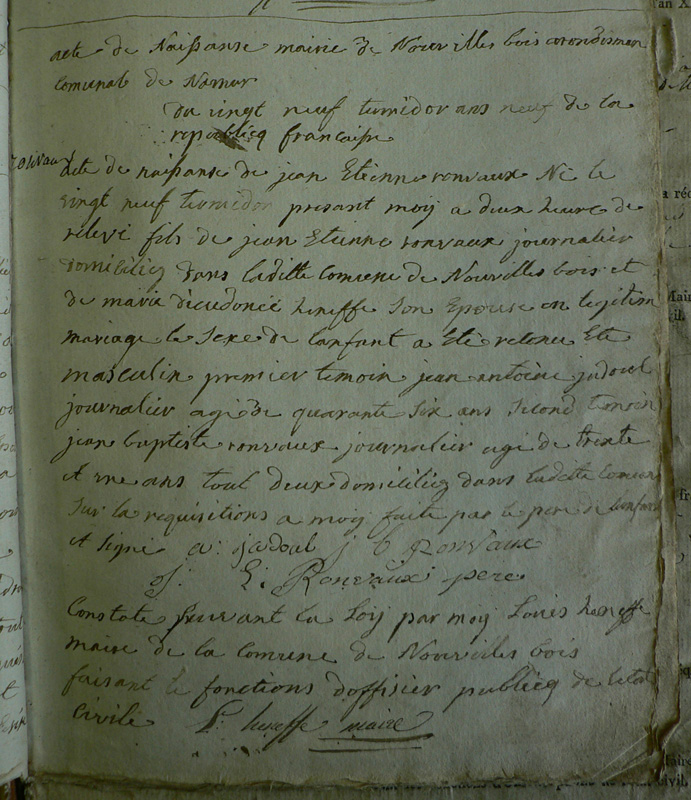 acte de Naissanse mairie de Nouvilles bois arondismen
comunal de Namur
du vingt neuf termidor ans neuf de la
republicq francaise
ronvaux
acte de naissanse de jean Etienne ronvaux Né le
vingt neuf termidor presant moy a deux heure de
relevé fils de jean Etienne ronvaux journalier
domiciliez dans laditte comune de Nouvilles bois et
de marie dieudoneé heneffe son Epouse en legitim
mariage le sexe de lanfant a Eté retenu Etre
masculin premier temoin jean antoine jadoul
journalier agé de quarante six ans second temoin
jean baptiste ronvaux journalier agé de trente
et une ans tout deux domiciliez dans laditte Comune
sur la requisitions a moy faite par le pere de lanfant
et signé a: jadoul j b Ronvaux
j. E. Ronvaux pere
Constaté suivant la Loy par moy Louis heneffe
maire de la comune de Nouvilles bois
faisant le fonctions doffisier publicq de letat
civile L: heneffe maire